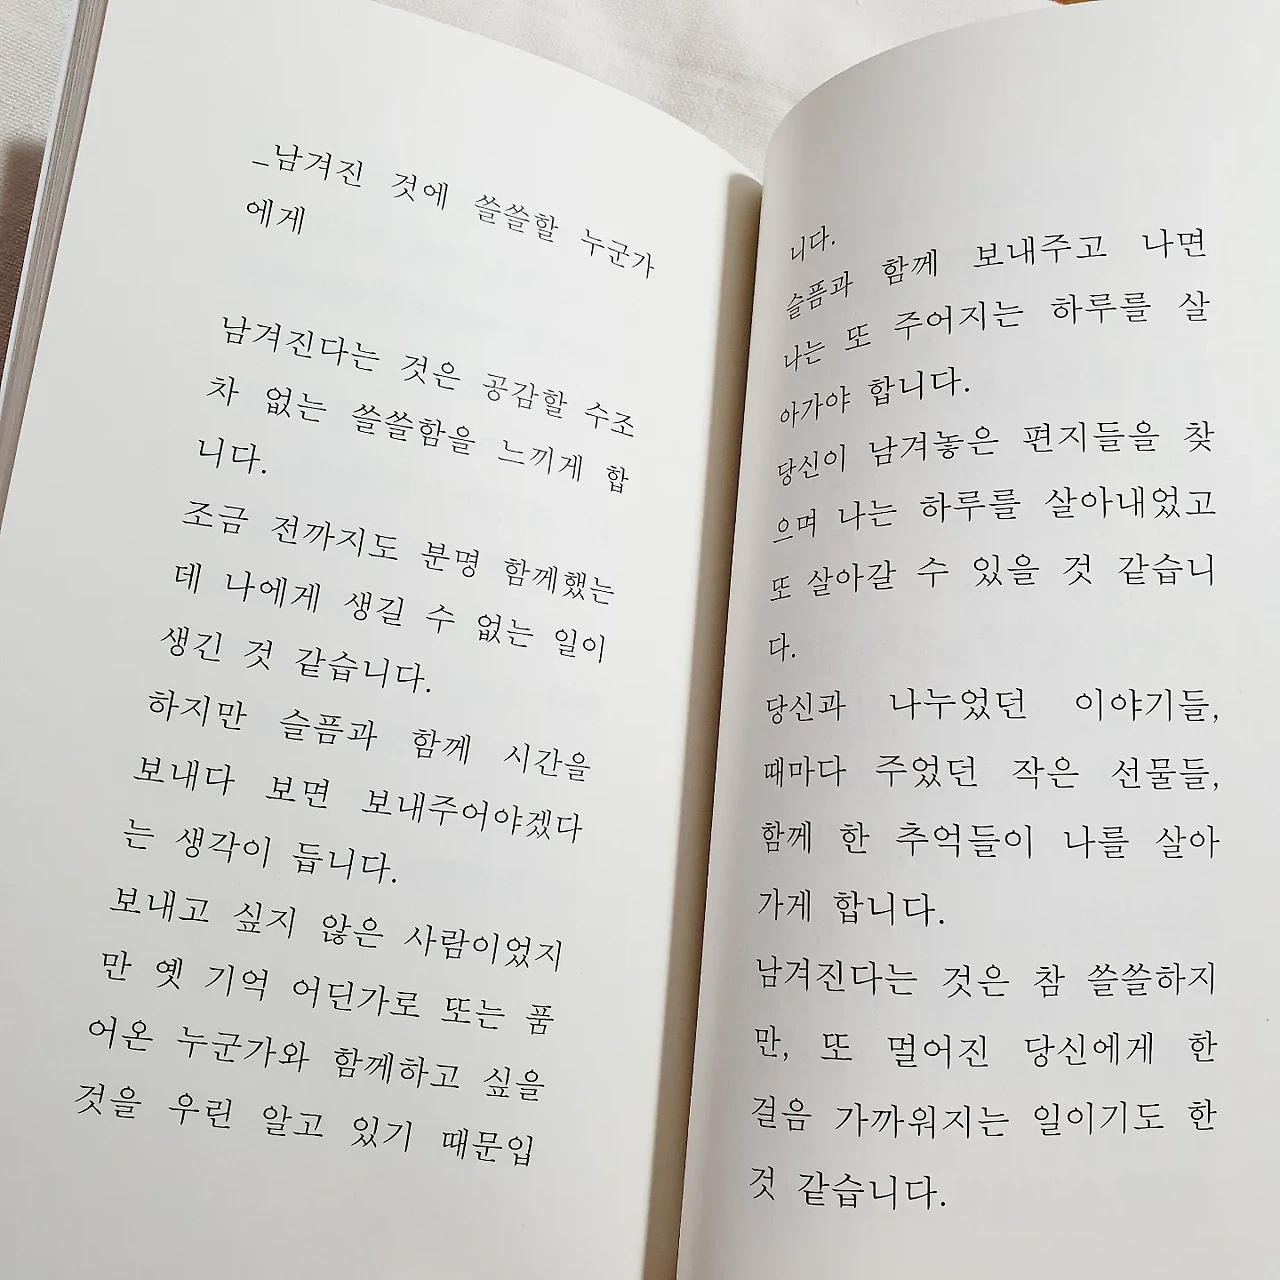 _남겨진 것에 쓸쓸할 누군가
에게
남겨진다는 것은 공감할 수조
차 없는 쓸쓸함을 느끼게 합
니다.
조금 전까지도 분명 함께했는
데 나에게 생길 수 없는 일이
생긴 것 같습니다.
하지만 슬픔과 함께 시간을
보내다 보면 보내주어야겠다
는 생각이 듭니다.
보내고 싶지 않은 사람이었지
만 옛 기억 어딘가로 또는 품
어온 누군가와 함께하고 싶을
것을 우린 알고 있기 때문입
니다.
슬픔과 함께 보내주고 나면
나는 또 주어지는 하루를 살
아가야 합니다.
당신이 남겨놓은 편지들을 찾
으며 나는 하루를 살아내었고
또 살아갈 수 있을 것 같습니
다.
당신과 나누었던 이야기들,
때마다 주었던 작은 선물들,
함께 한 추억들이 나를 살아
가게 합니다.
남겨진다는 것은 참 쓸쓸하지
만, 또 멀어진 당신에게 한
걸음 가까워지는 일이기도 한
것 같습니다.